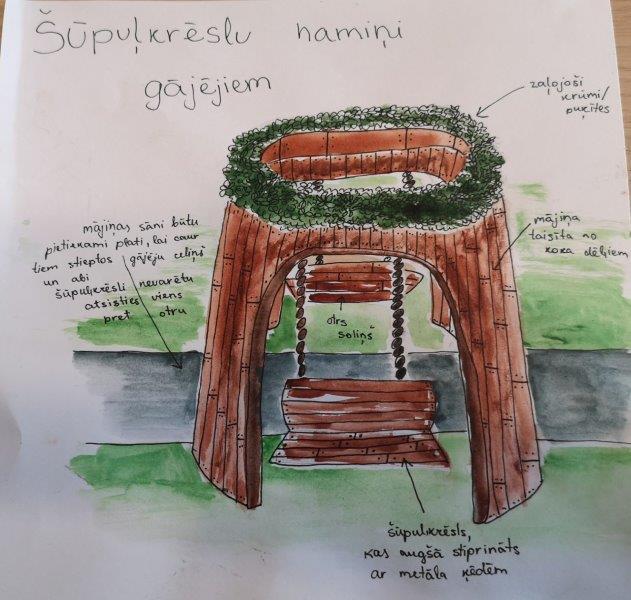 Šūpuļkrēslu namiņi
gājējiem
zaļojoši
krūmi/
puķītes
mājiņas sāni būtu
pietiekami plati, lai caur
tiem stieptos gājēju celiņš
un abi
šūpuļkrēsli nevarētu
atsisties viens
pret otru
mājiņa
taisīta no
koka dēļiem
otrs
soliņš
šūpuļkrēsls,
kas augšā stiprināts
ar metāla ķēdēm